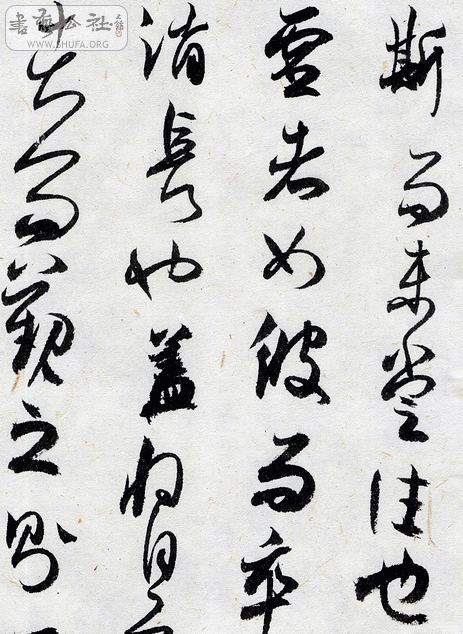 書法公社
WWW.SHUFA.ORG
斯而未嘗往也
虛者如彼而卒
消長也蓋將自
者而觀之則